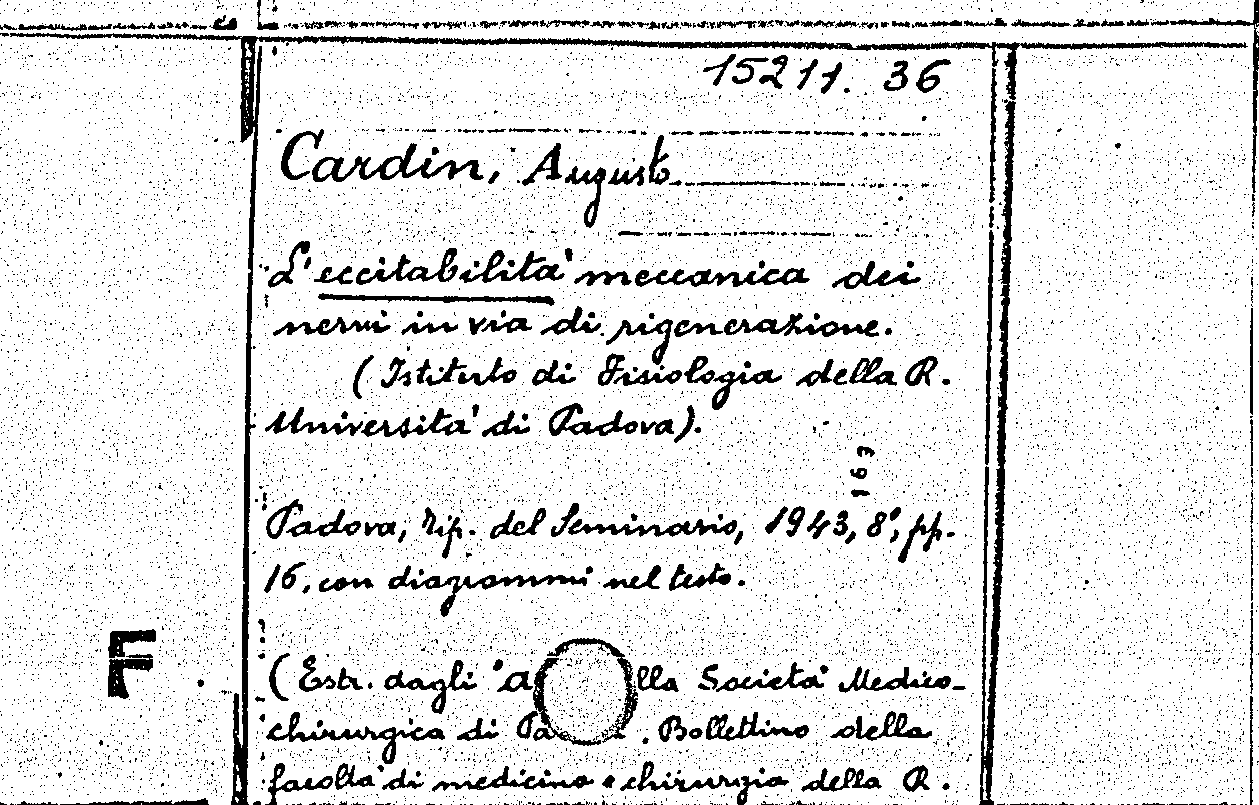 15211. 36
Cardin, Augusto
L'eccitabilità meccanica dei
nervi in via di rigenerazione.
(Istituto di Fisiologia della R.
Università di Padova).
163
Padova, Tip. del Seminario, 1943, 8°, pp.
16, con diagrammi nel testo.
F
(Estr. dagli lla Società Medico-
chirurgica di . Bollettino della
facoltà di medicina e chirurgia della R.